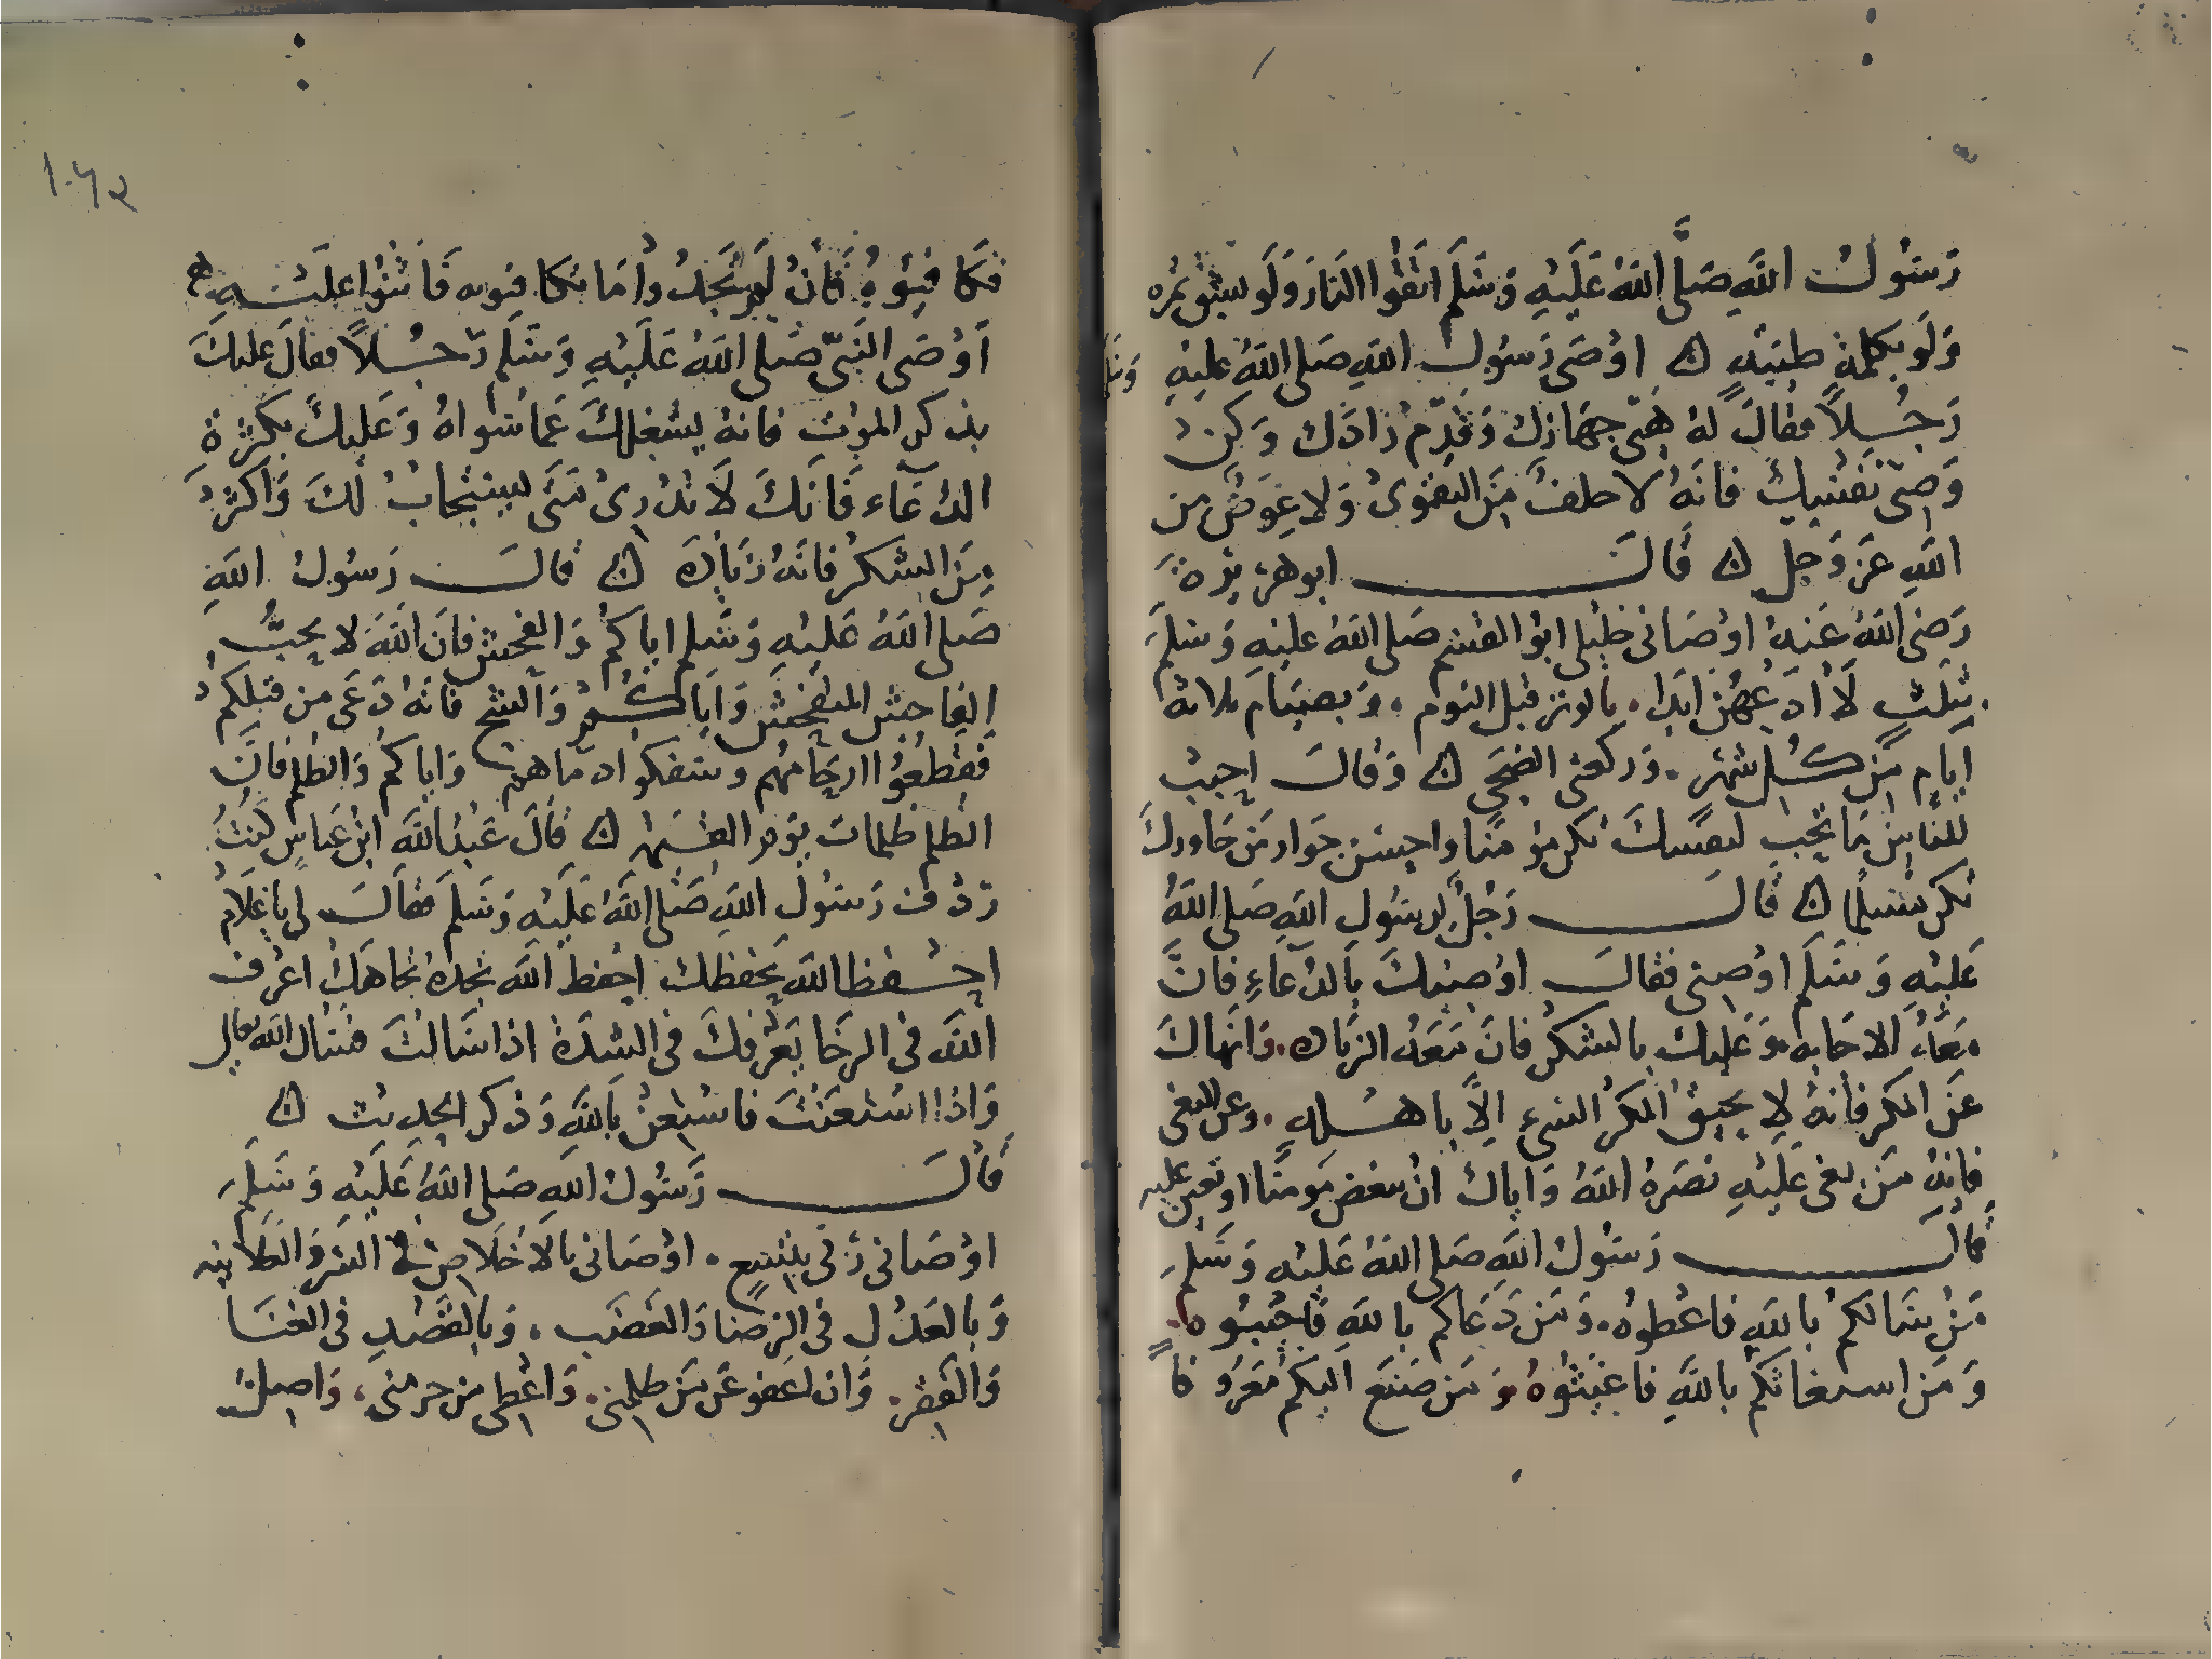 رَسُولُ اللَّهِ صَلَّى اللَّهُ عَلَيْهِ وَسَلَّمَ اتَّقُوا النَّارَ وَلَو بِشِقِّ تَمْره
وَلَو بِكَلِمَةٍ طَيِّبَةٍ ن اوْصَى رَسُول اللهِ صَلى اللهُ عليهِ وَسَلم
رَجُلاً فقالَ لهُ هَيِّئ جهَازَك وَقَدِّم زادَك وَكن
وَصِيّ نَفْسِكَ فانهُ لا خلف مِنَ التقوَى وَلا عِوَضٌ من
اللهِ عَز وَجل ن قَالَ ابو هرَيْرَة
رَضِىَ اللهُ عَنهُ اوْصَانى خليلى ابو القسم صَلى اللهُ عليهِ وَسَلمَ
بثلثٍ لا أدَعُهُنَّ ابَدا. بالوتر قبل النوم. وَبصيَام ثلاثة
ايام مِن كُل شهْر. وَركعتى الضحَى ن وَقَالَ احِبّ
للناسِ مَا تحب لنفسِكَ تكن مؤمنا واحسن جوَار مَن جَاورَكَ
تكن مسلما ن قَالَ رَجُلٌ لرسُول اللهِ صَلى اللهُ
عَليْهِ وَسَلم اوْصِنى فقالَ اوْصِيكَ بالدُّعَاءِ فَانَّ
مَعَهُ الاجَابه وَعَليكَ بالشكرِ فانَّ مَعَهُ الزيَاده. وَانهَاكَ
عَنِ المَكرِ فانهُ لا يحيقُ المكرُ السَّيئ الاَّ باهْلهِ. وعن البغى
فانهُ مَن بغى عَليْهِ نصَرَهُ اللهُ وَاياك ان تبغض مومنا او تعين عليه
قالَ رَسُولُ اللهِ صَلى اللهُ عَليْهِ وَسَلمَ
مَنْ سَالكُم باللهِ فاعْطوهُ. وَمَن دَعَاكم باللهِ فاجيبُوه.
وَمَن استغاثكم باللهِ فاغيثوهُ وَمَن صَنع اليكم مَعرُوفاً
فكافِئُوهُ فانْ لم تجدُوا مَا تكافِئوه فَاثنُوا عليْهِ
أوْصَى النَّبِيّ صَلى اللهُ عَليْهِ وَسَلم رَجُلاً فقالَ عليكَ
بذكرِ الموْتِ فانهُ يشغلكَ عَما سواهُ وَعَليكَ بكثرة
الدُّعَاء فَانكَ لا تدْرِى متى يستجابُ لكَ وَاكثر
مِنَ الشكر فانهُ زيَادَة ن قالَ رَسُولُ اللهِ
صَلى اللهُ عَليْهِ وَسَلم اياكم وَالفحش فان اللهَ لا يحبُّ
الفاحِشَ المتفحش وَايَاكُم وَالشح فانهُ دَعَى من قبلكم
فقطعُوا ارحَامهُم وسفكوا دمَاهم وَاياكم وَالظلم فان
الظلم ظلمات يوْم القيمة ن قَالَ عَبْدُ اللهِ ابن عَباسٍ كنتُ
ردْف رَسُول اللهِ صَلى اللهُ عَليْهِ وَسَلم فقالَ لى يا غلام
احْفظ اللهَ يَحفظك احفظ اللهَ تجدهُ تجاهَك اعْرف
اللهَ فى الرخَا يَعْرفكَ فى الشِدَّة اذا سَالتَ فسال الله تعالى
وَاذا استعنْتَ فاستعن باللهِ وَذكر الحديث ن
قَالَ رَسُولُ اللهِ صَلى اللهُ عَليْهِ وَسَلمَ
اوْصَانى رَبى بتسعٍ. اوْصَانى بالاخلاصِ فى السّر وَالعَلانيه
وَبالعَدْل فى الرضَا وَالغضب. وَبالقصْدِ فى الغنَا
وَالفقر. وَان اعفو عَمَّن ظلمنى. وَاعْطِى من حرمنى، وَاصل
١٠٦٢